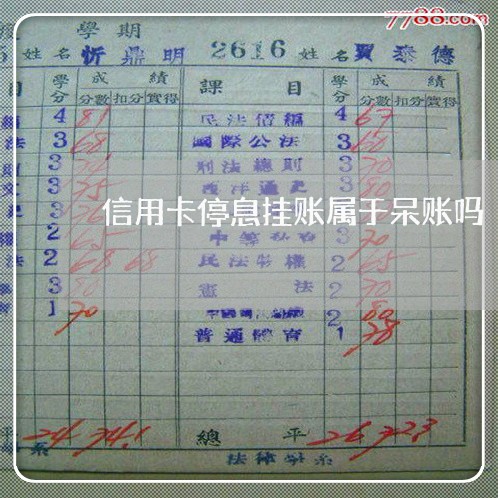 7788.com
學期
姓名 忻鼎明 2616 姓名 賈泰德
目 學分 成績 課目 學分 成績
分數 扣分 實得 分數 扣分 實得
4 81 民法債編 4 67
法 3 68 國際公法 3 60
3 刑法總則 3 70
3 75 西洋通史 3 80
信用卡停息挂账属于呆账吗
2 65 中等私 3 70
法 2 68 68 民法物權 2 65
3 80 憲法 2 70
1 70 2 80
普通體育 1 78
平 24 74.1 總平 26 72.3
系 法律學系